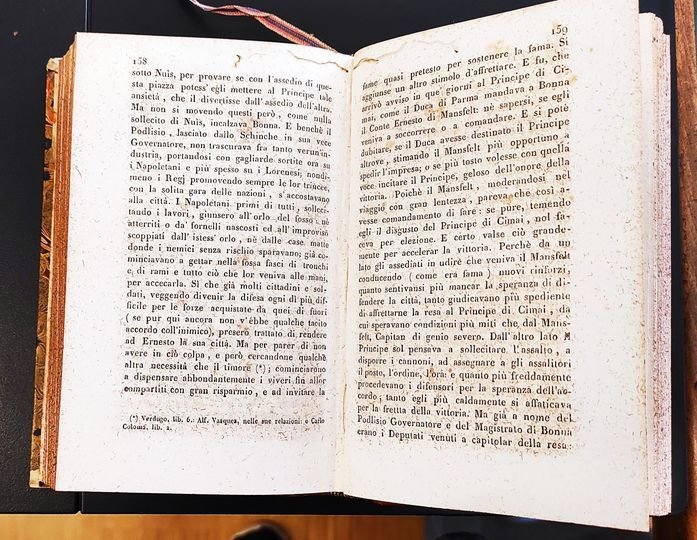 158
sotto Nuis, per provare se con l'assedio di que-
sta piazza potess' egli mettere al Principe tale
ansietà, che il divertisse dall' assedio dell'altra.
Ma non si movendo questi però, come nulla
sollecito di Nuis, incalzava Bonna. E benchè il
Podlisio, lasciato dallo Schinche in sua vece
Governatore, non trascurava fra tanto verun'in-
dustria, portandosi con gagliarde sortite ora su
i Napoletani e più spesso su i Lorenesi; nondi-
meno i Regj promovendo sempre le lor trincee,
con la solita gara delle nazioni, s'accostavano
alla città. I Napoletani primi di tutti, solleci-
tando i lavori, giunsero all'orlo del fosso: nè
atterriti o da' fornelli nascosti ed all'improviso
scoppiati dall' istess' orlo, nè dalle case matte
donde i nemici senza rischio sparavano; già co-
minciavano a gettar nella fossa fasci di tronchi
e di rami e tutto ciò che lor veniva alle mani,
per accecarla. Sì che già molti cittadini e sol-
dati, veggendo divenir la difesa ogni dì più dif-
ficile per le forze acquistate da quei di fuori
( se pur qui ancora non v'ebbe qualche tacito
accordo coll'inimico), presero trattato di rendere
ad Ernesto la sua città. Ma per parer di non
avere in ciò colpa, e però cercandone qualche
altra necessità che il timore (*); cominciarono
a dispensare abbondantemente i viveri fin allor
compartiti con gran risparmio, e ad invitare la
(*) Verdugo, lib. 6.: Alf. Vasquez, nelle sue relazioni: e Carlo
Coloma, lib. 2.
159
fame quasi pretesto per sostenere la fama. Si
aggiunse un altro stimolo d'affrettare. E fu, che
arrivò avviso in que' giorni al Principe di Ci-
mai, come il Duca di Parma mandava a Bonna
il Conte Ernesto di Mansfelt: nè sapersi, se egli
veniva a soccorrere o a comandare. E si potè
dubitare, se il Duca avesse destinato il Principe
altrove, stimando il Mansfelt più opportuno a
spedir l'impresa; o se più tosto volesse con quella
voce incitare il Principe, geloso dell'onore della
vittoria. Poichè il Mansfelt, moderandosi nel
viaggio con gran lentezza, pareva che così a-
vesse comandamento di fare: se pure, temendo
egli il disgusto del Principe di Cimai, nol fa-
ceva per elezione. E certo valse ciò grande-
mente per accelerar la vittoria. Perchè da un
lato gli assediati in udire che veniva il Mansfelt
conducendo ( come era fama ) nuovi rinforzi,
quanto sentivansi più mancar la speranza di di-
fendere la città, tanto giudicavano più spediente
di affrettarne la resa al Principe di Cimai, da
cui speravano condizioni più miti che dal Mans-
felt, Capitan di genio severo. Dall'altro lato il
Principe sol pensava a sollecitare l'assalto, a
disporre i cannoni, ad assegnare a gli assalitori
il posto, l'ordine, l'ora: e quanto più freddamente
procedevano i difensori per la speranza dell'ac-
cordo; tanto egli più caldamente si affaticava
per la fretta della vittoria. Ma già a nome del
Podlisio Governatore e del Magistrato di Bonna
erano i Deputati venuti a capitolar della resa: